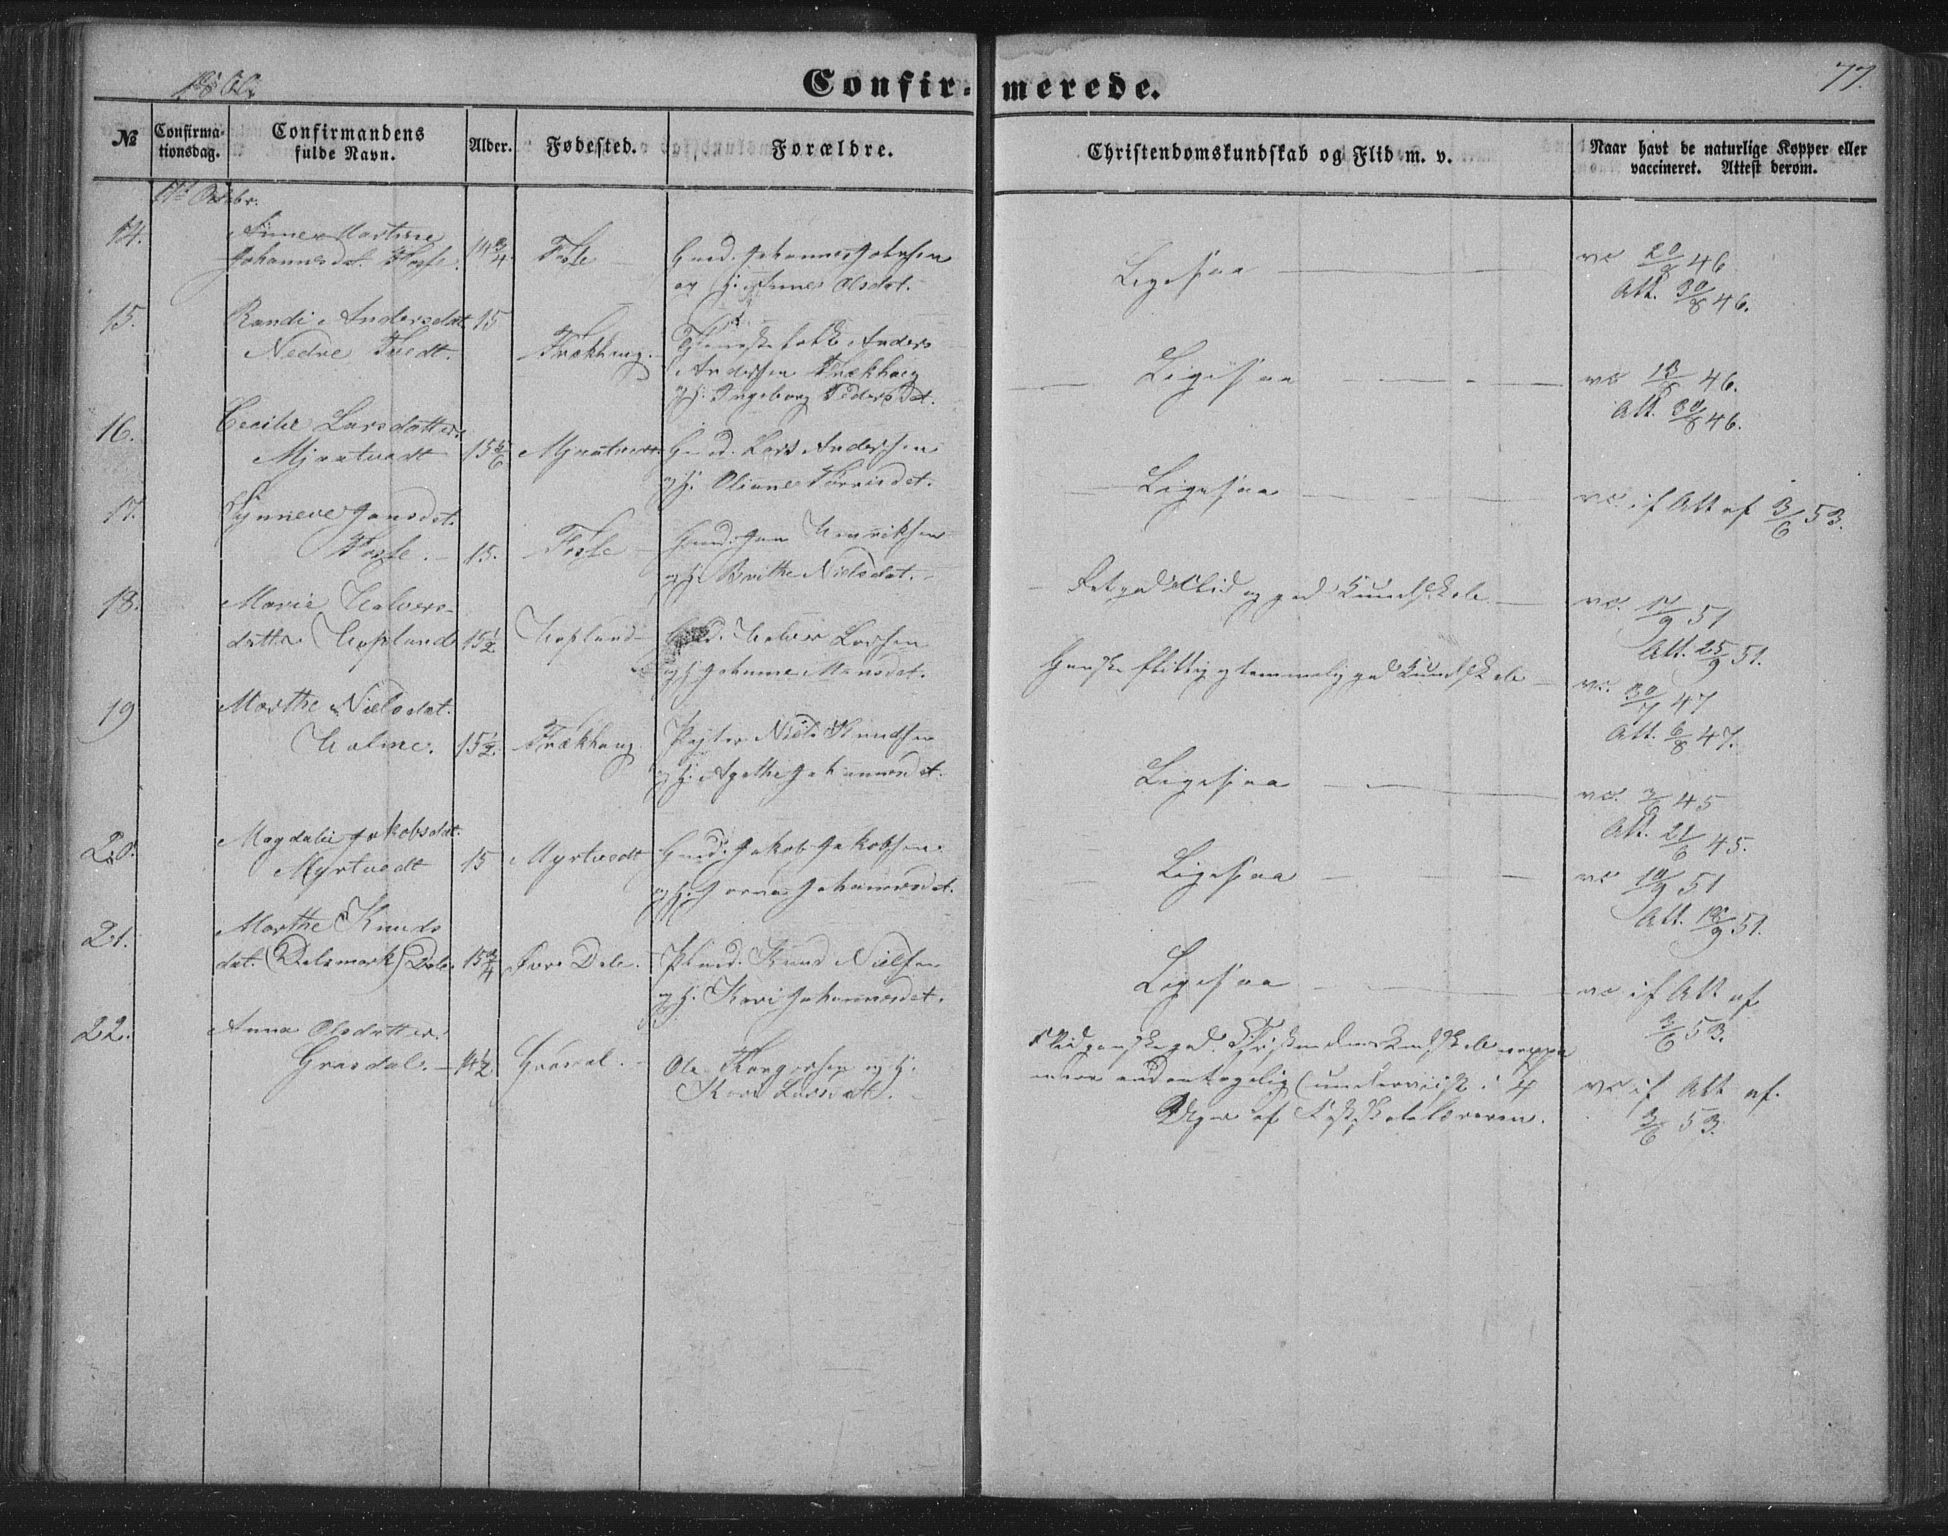 1860.
Confir- merede.
77.
№
Confirma-
tionsdag.
Confirmandens
fulde Navn.
Alder.
Fødested.
Forældre.
Christendomskundskab og Flid m. v.
Naar havt de naturlige Kopper eller
vaccineret. Attest derom.
Octobr.
14.
Anne Martine
Johannesdat. Fosse.
14 3/4
Fosse
Gmd. Johannes Jakobsen
og H. Anne Olsdat.
Ligesaa
vc 46
Att. 30/8 46.
15.
Randi Andersdat.
Nedre Tvedt.
15
Trækhaug.
Anders
Andersen Trækhaug
og H. Ingeborg Pedersdat.
Ligesaa
vc 46.
Att. 30/8 46.
16.
Cecilie Larsdatter
Mjaatvedt
15 5/6
Mjaatvedt
Gmd. Lars Andersen
og H. Oliane
Ligesaa
vc. if Att af 3/6 53.
17.
Synneve Jansdat.
Fosse.
15.
Fosse
Gmd. Jan Henriksen
og H. Brithe Nielsdat.
god Flid og god Kundskab.
vc. 51
Att. 25/9 51.
18.
Marie Halvors-
datter Hopland
15 1/2
Hopland
Gmd. Halvor Larsen
og H. Johanne Monsdat.
Ganske flittig og temmelig god Kundskab
vc. 30/7 47
Att. 6/8 47.
19
Marthe Nielsdat.
Holme.
15 1/2
Trækhaug
Niels Knudsen
og H. Agathe Johannesdat.
Ligesaa
vc. 45
Att. 21/6 45.
20.
Magdali Jakobsdat.
Myrtvedt
15
Myrtvedt
Gmd. Jakob Jakobsen
og H. Johannesdat.
Ligesaa
vc 51
Att. 51.
21.
Marthe Knuds
dat. (Dalsmark) Dale.
15 3/4
Øvre Dale.
Knud Nielsen
og H. Kari Johannesdat.
Ligesaa
vc if Att af
3/6 53.
22.
Anna Olsdatter
Grasdal.
14 1/2
Grasdal.
Ole og H.
Kari Larsdat.
Flid ganske god.
mere end antagelig (underviist i 4
Uger af
vc if Att af.
3/6 53.